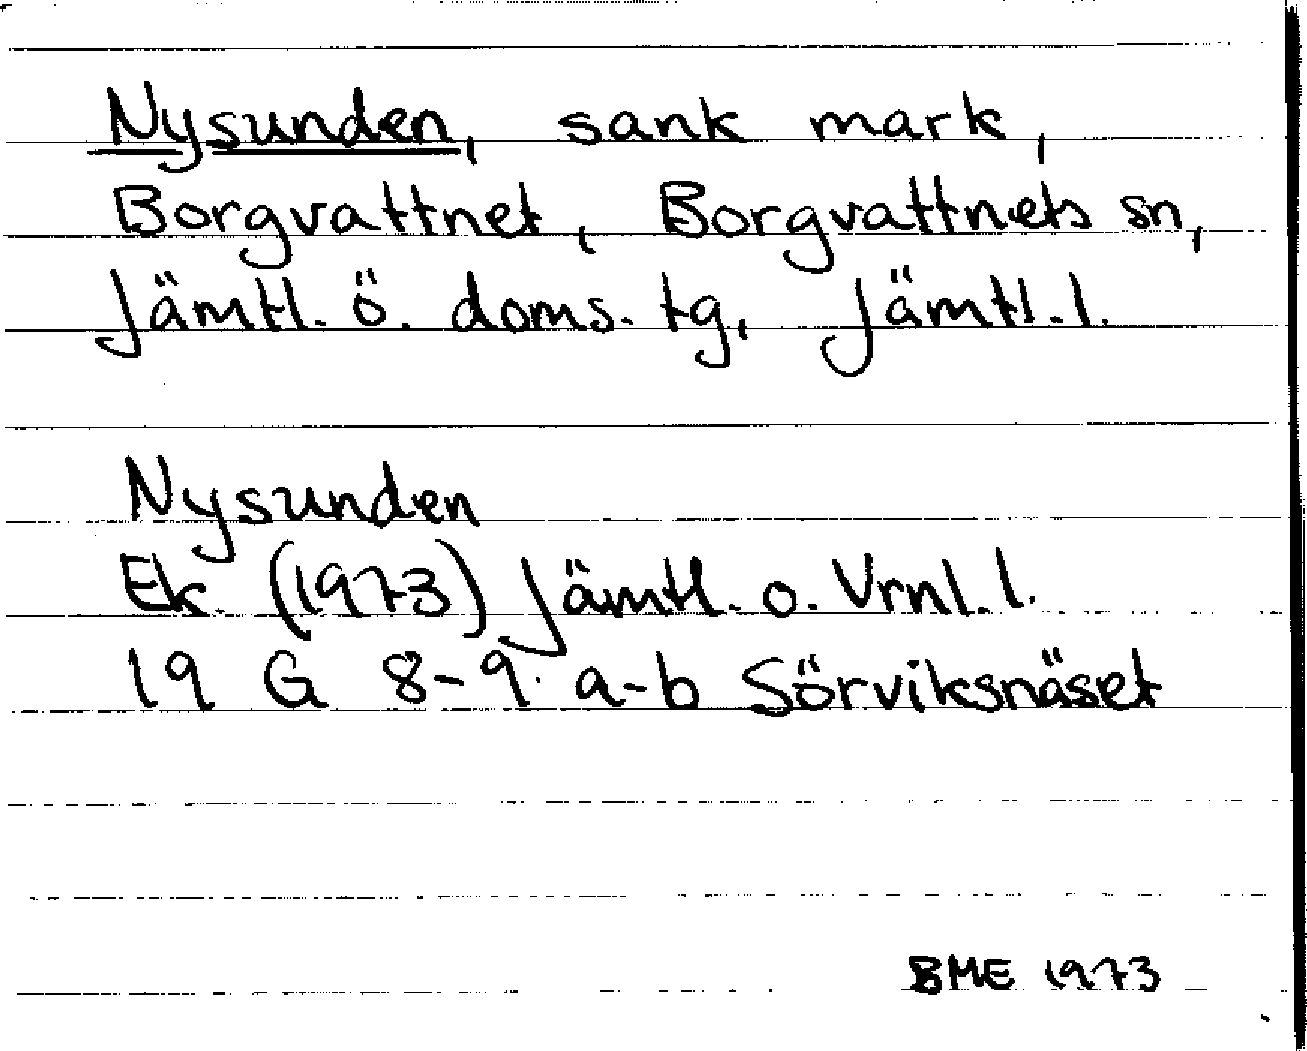 Nysunden, sank mark,
Borgvattnet, Borgvattnets sn,
Jämtl. ö. doms. tg, Jämtl. l.
Nysunden
Ek. (1973) Jämtl. o. Vrnl. l.
19 G 8-9 a-b Sörviksnäset
BME 1973